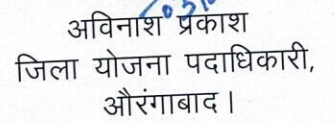 अविनाश प्रकाश
जिला योजना पदाधिकारी,
औरंगाबाद।